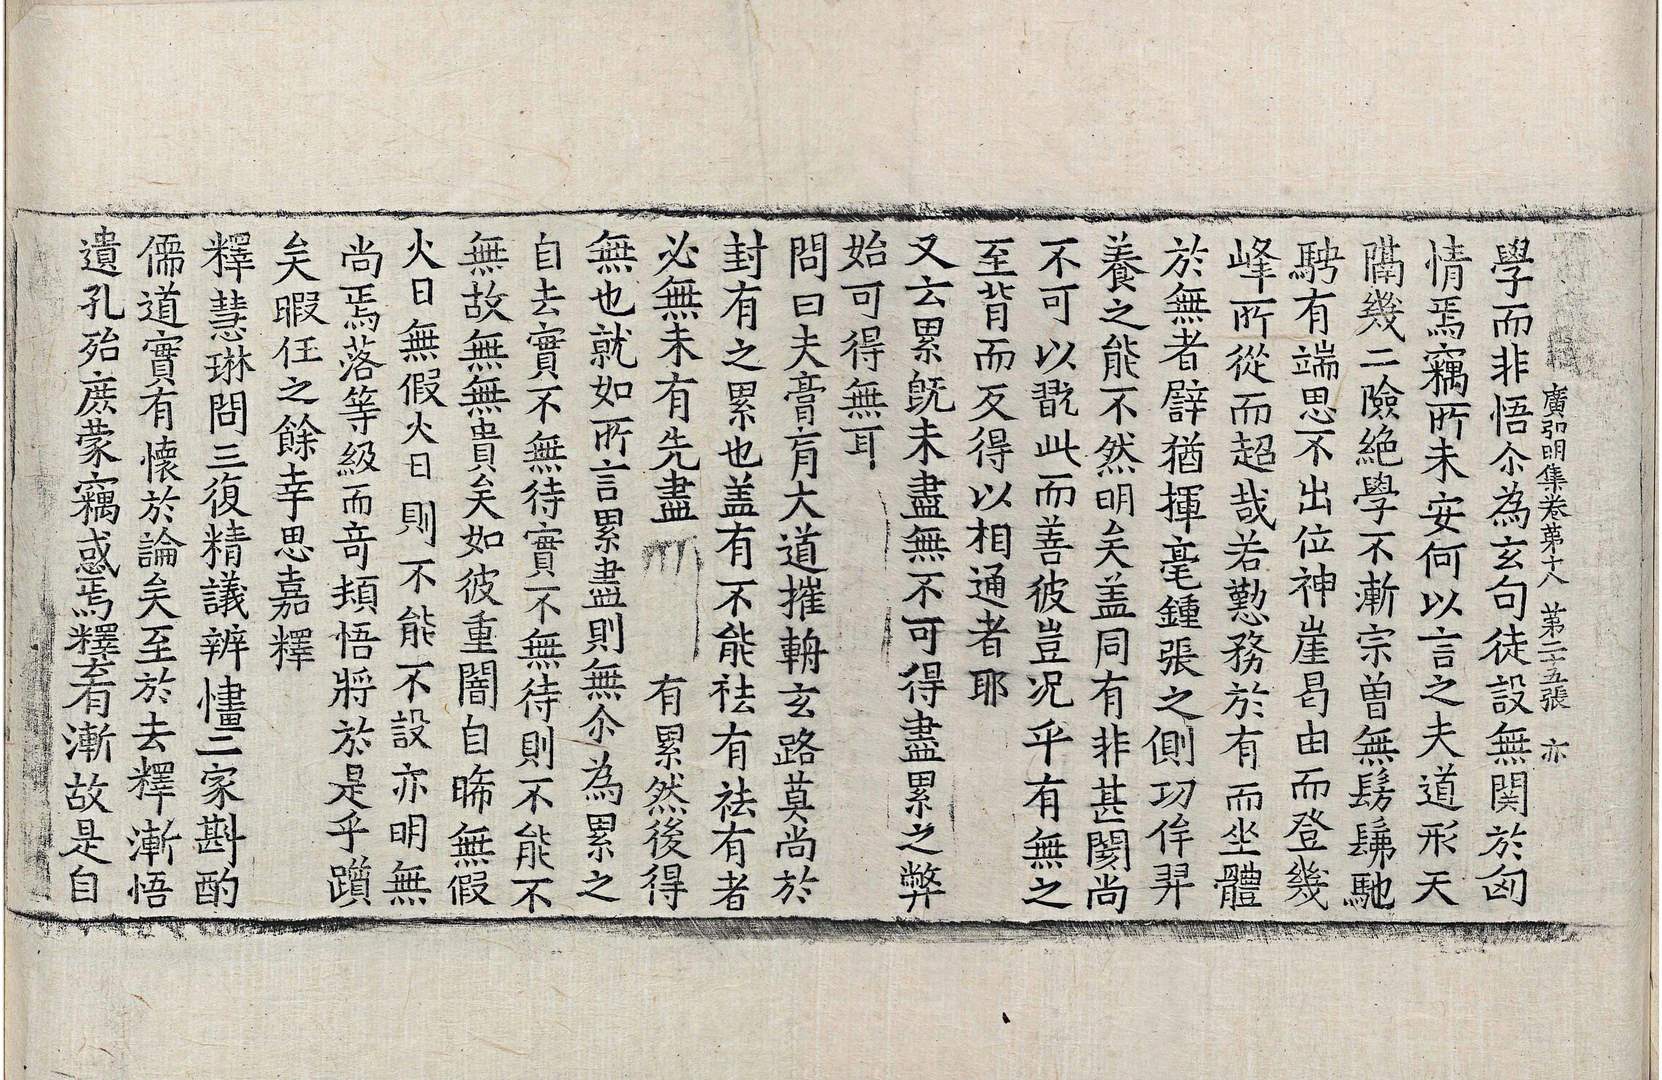 廣弘明集卷第十八 第二十五張 亦
學而非悟尒為玄句徒設無関於胷
情焉竊所未安何以言之夫道形天
隔幾二險絶學不漸宗曽無髣髴馳
騁有端思不出位神崖曷由而登幾
峰所從而超哉若勤務於有而坐體
於無者譬猶揮毫鍾張之側功侔羿
養之能不然明矣盖同有非甚閡尚
不可以翫此而善彼豈况乎有無之
至背而反得以相通者耶
又云累旣未盡無不可得盡累之弊
始可得無耳
問曰夫膏肓大道摧輈玄路莫尚於
封有之累也盖有不能祛有祛有者
必無未有先盡 有累然後得
無也就如所言累盡則無尒為累之
自去實不無待實不無待則不能不
無故無無貴矣如彼重闇自晞無假
火日無假火日則不能不設亦明無
尚焉落等級而竒頓悟將於是乎躓
矣暇任之餘幸思嘉釋
釋慧琳問三復精議辨㦎二家斟酌
儒道實有懷於論矣至於去釋漸悟
遺孔殆庶蒙竊惑焉釋玄有漸故是自